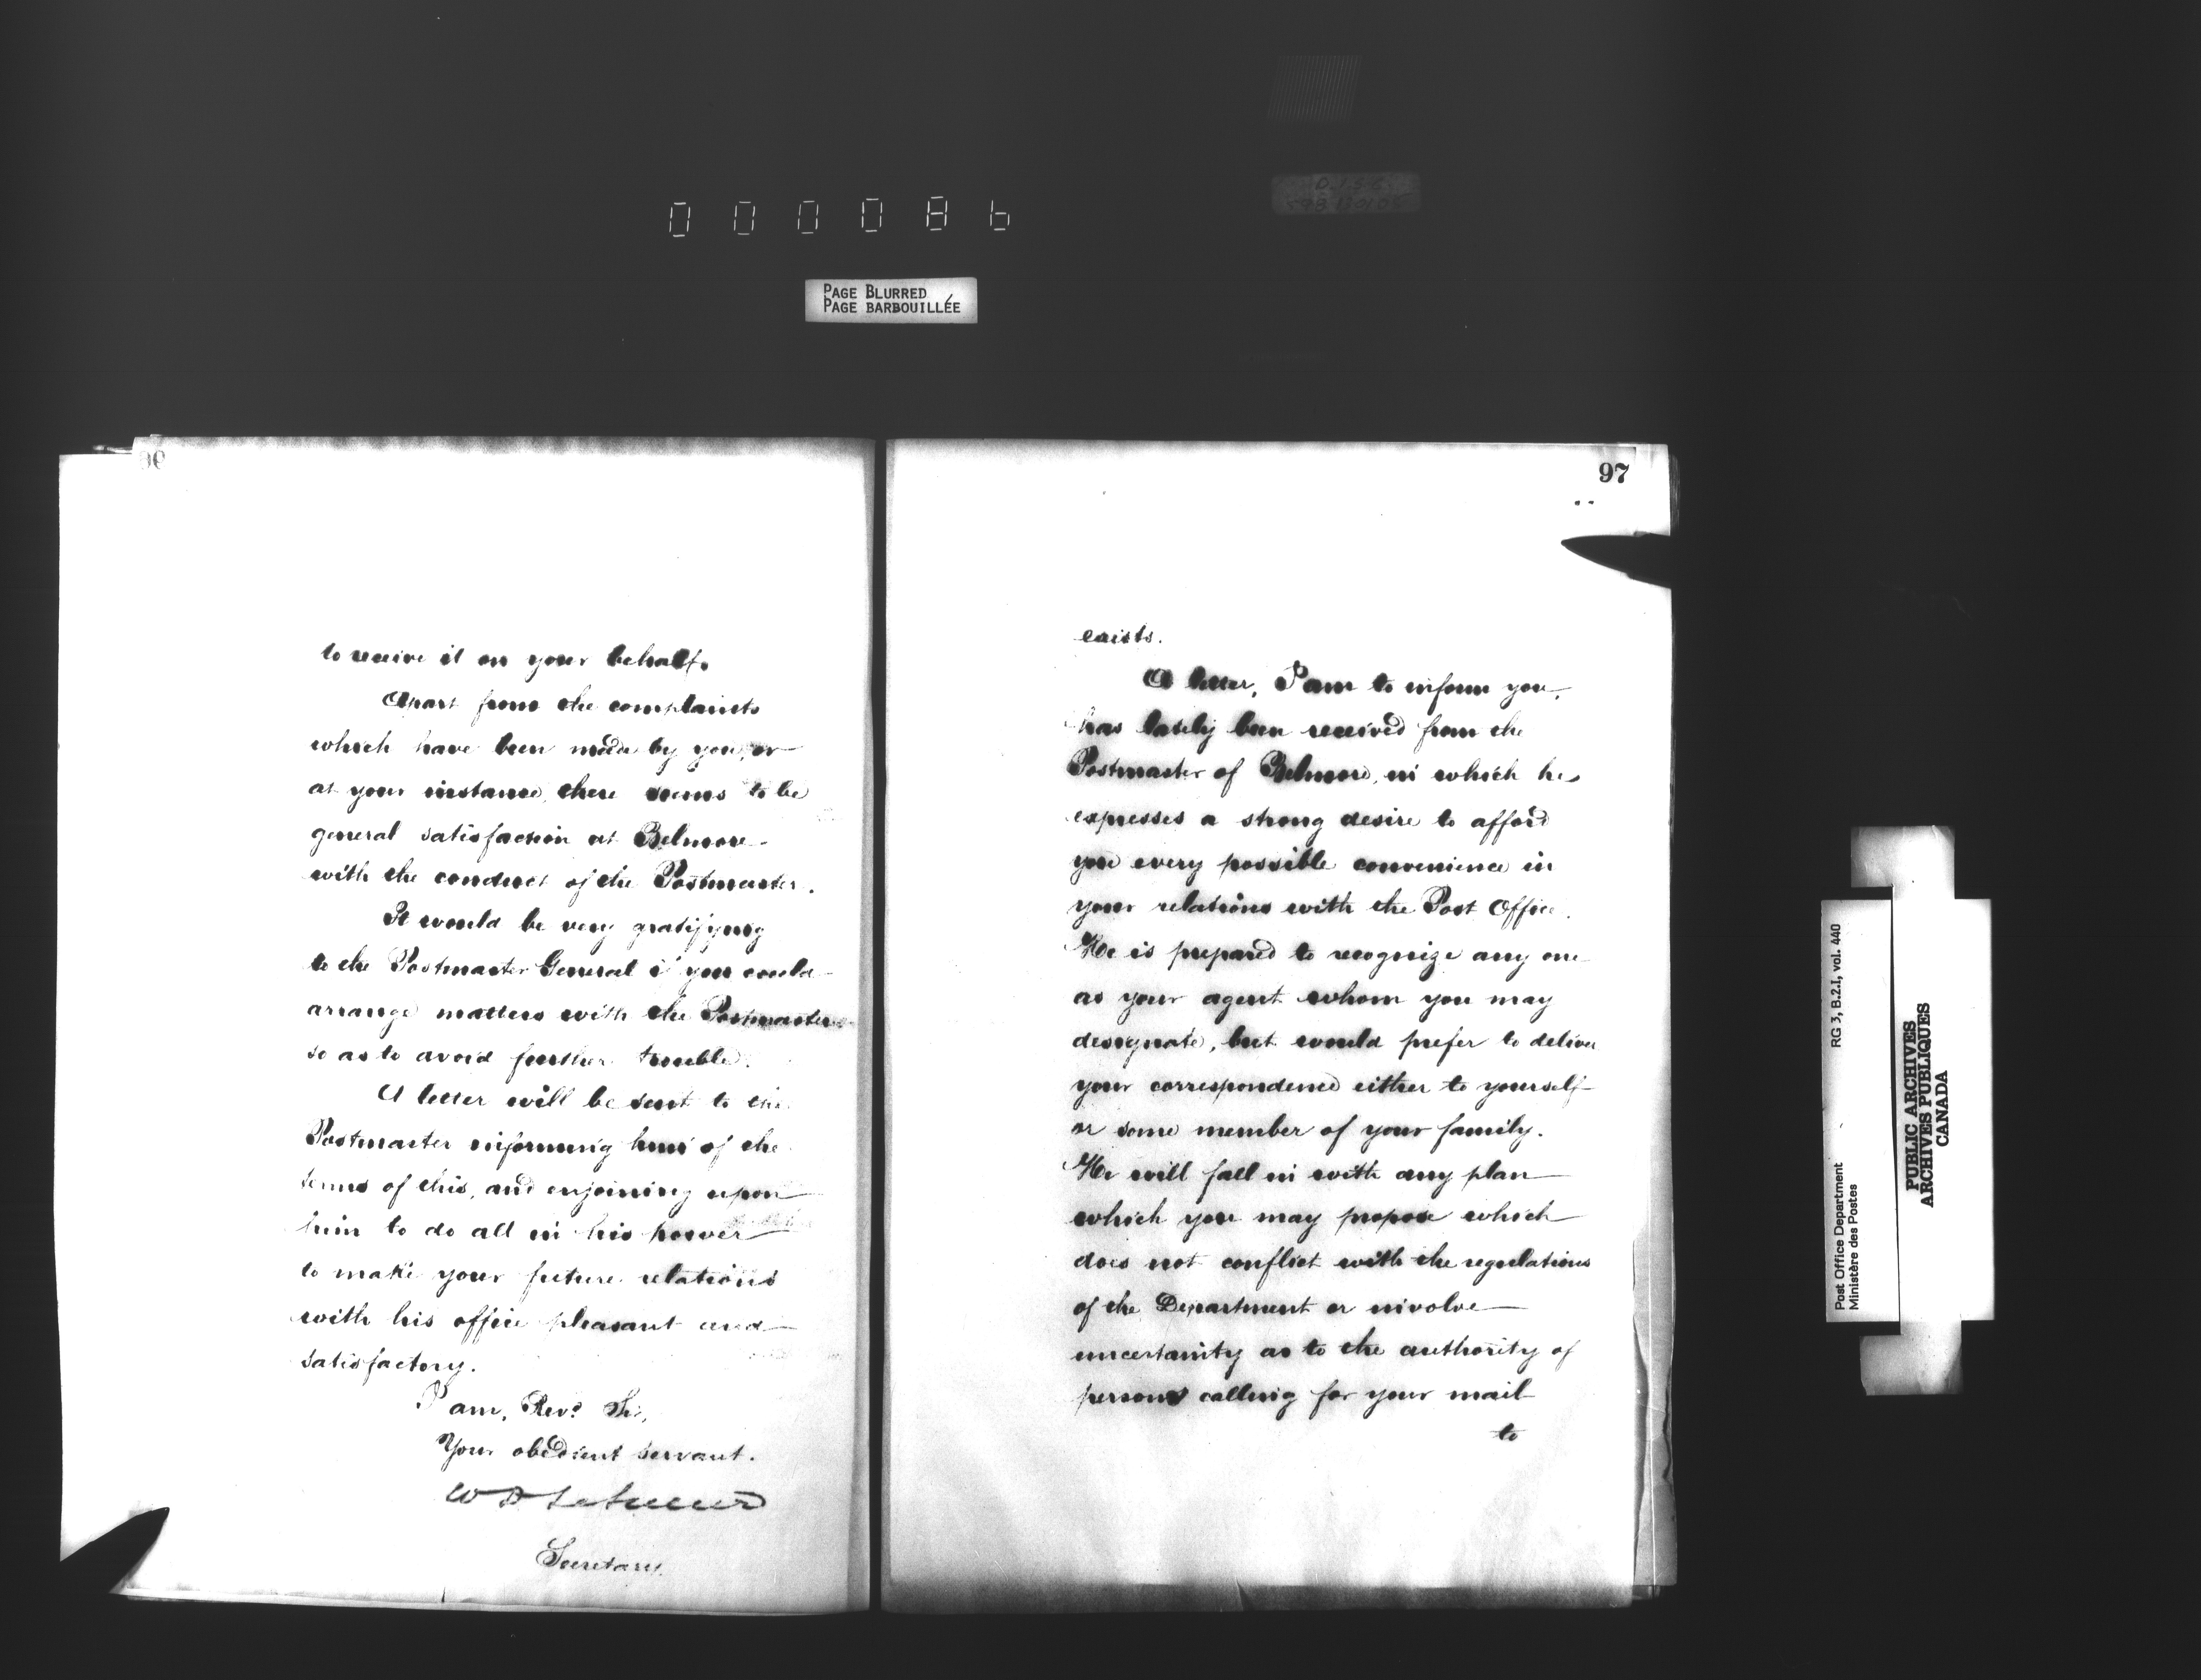 000086
PAGE BLURRED
PAGE BARBOUILLÉE
96
to receive it on your behalf.
Apart from the complaints
which have been made by you, or
at your instance, there seems to be
general satisfaction at Belmore
with the conduct of the Postmaster.
It would be very gratifying
to the Postmaster General if you could
arrange matters with the Postmaster
so as to avoid further trouble.
A letter will be sent to the
Postmaster informing him of the
terms of this, and enjoining upon
him to do all in his power
to make your future relations
with his office pleasant and
satisfactory.
I am, Revd. Sir,
Your obedient servant.
W D LeSueur
Secretary.
97
exists.
A letter, I am to inform you,
has lately been received from the
Postmaster of Belmore, in which he
expresses a strong desire to afford
you every possible convenience in
your relations with the Post Office.
He is prepared to recognize any one
as your agent whom you may
designate, but would prefer to deliver
your correspondence either to yourself
or some member of your family.
He will fall in with any plan
which you may propose which
does not conflict with the regulations
of the Department or involve
uncertainity as to the authority of
persons calling for your mail
to
Post Office Department
Ministère des Postes
RG 3, B.2.I, vol. 440
PUBLIC ARCHIVES
ARCHIVES PUBLIQUES
CANADA